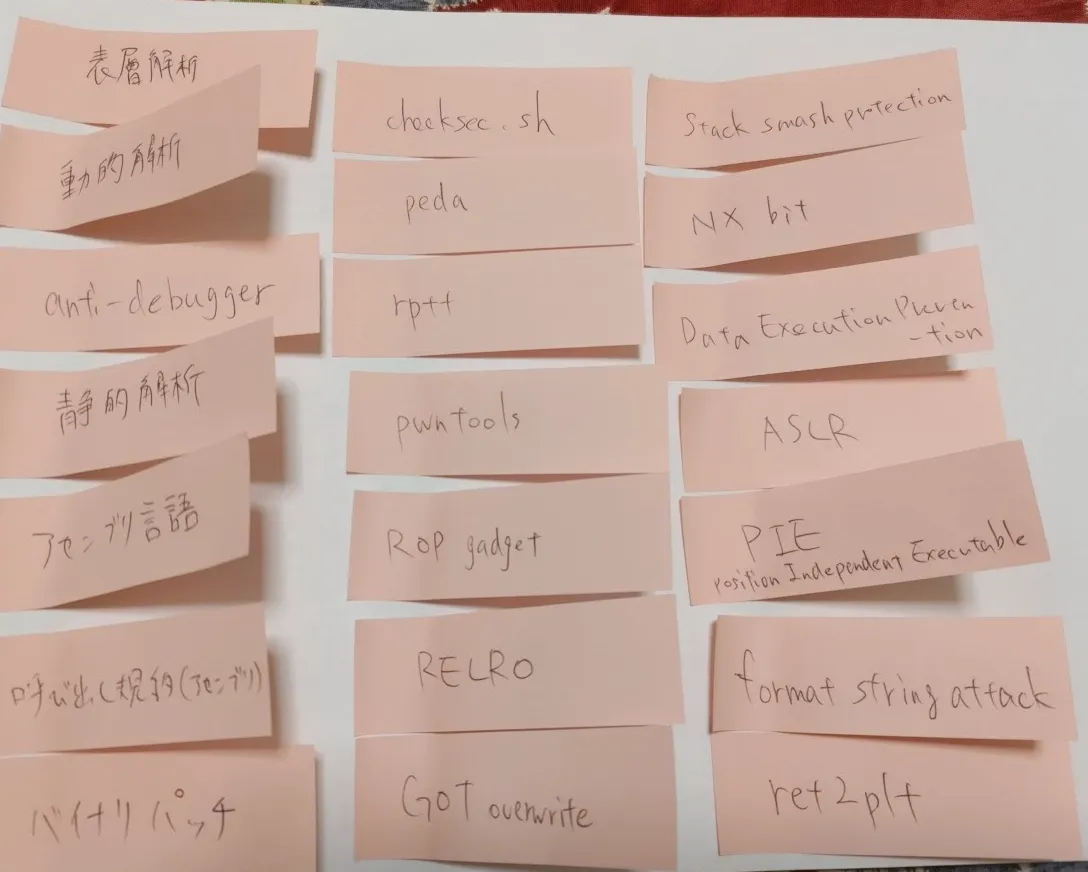 表層解析
動的解析
anti-debugger
静的解析
アセンブリ言語
呼び出し規約(アセンブリ)
バイナリパッチ
checksec.sh
peda
rp++
pwntools
ROP gadget
RELRO
GOT overwrite
Stack smash protection
NX bit
Data Execution Preven
-tion
ASLR
PIE
Position Independent Executable
format string attack
ret2plt